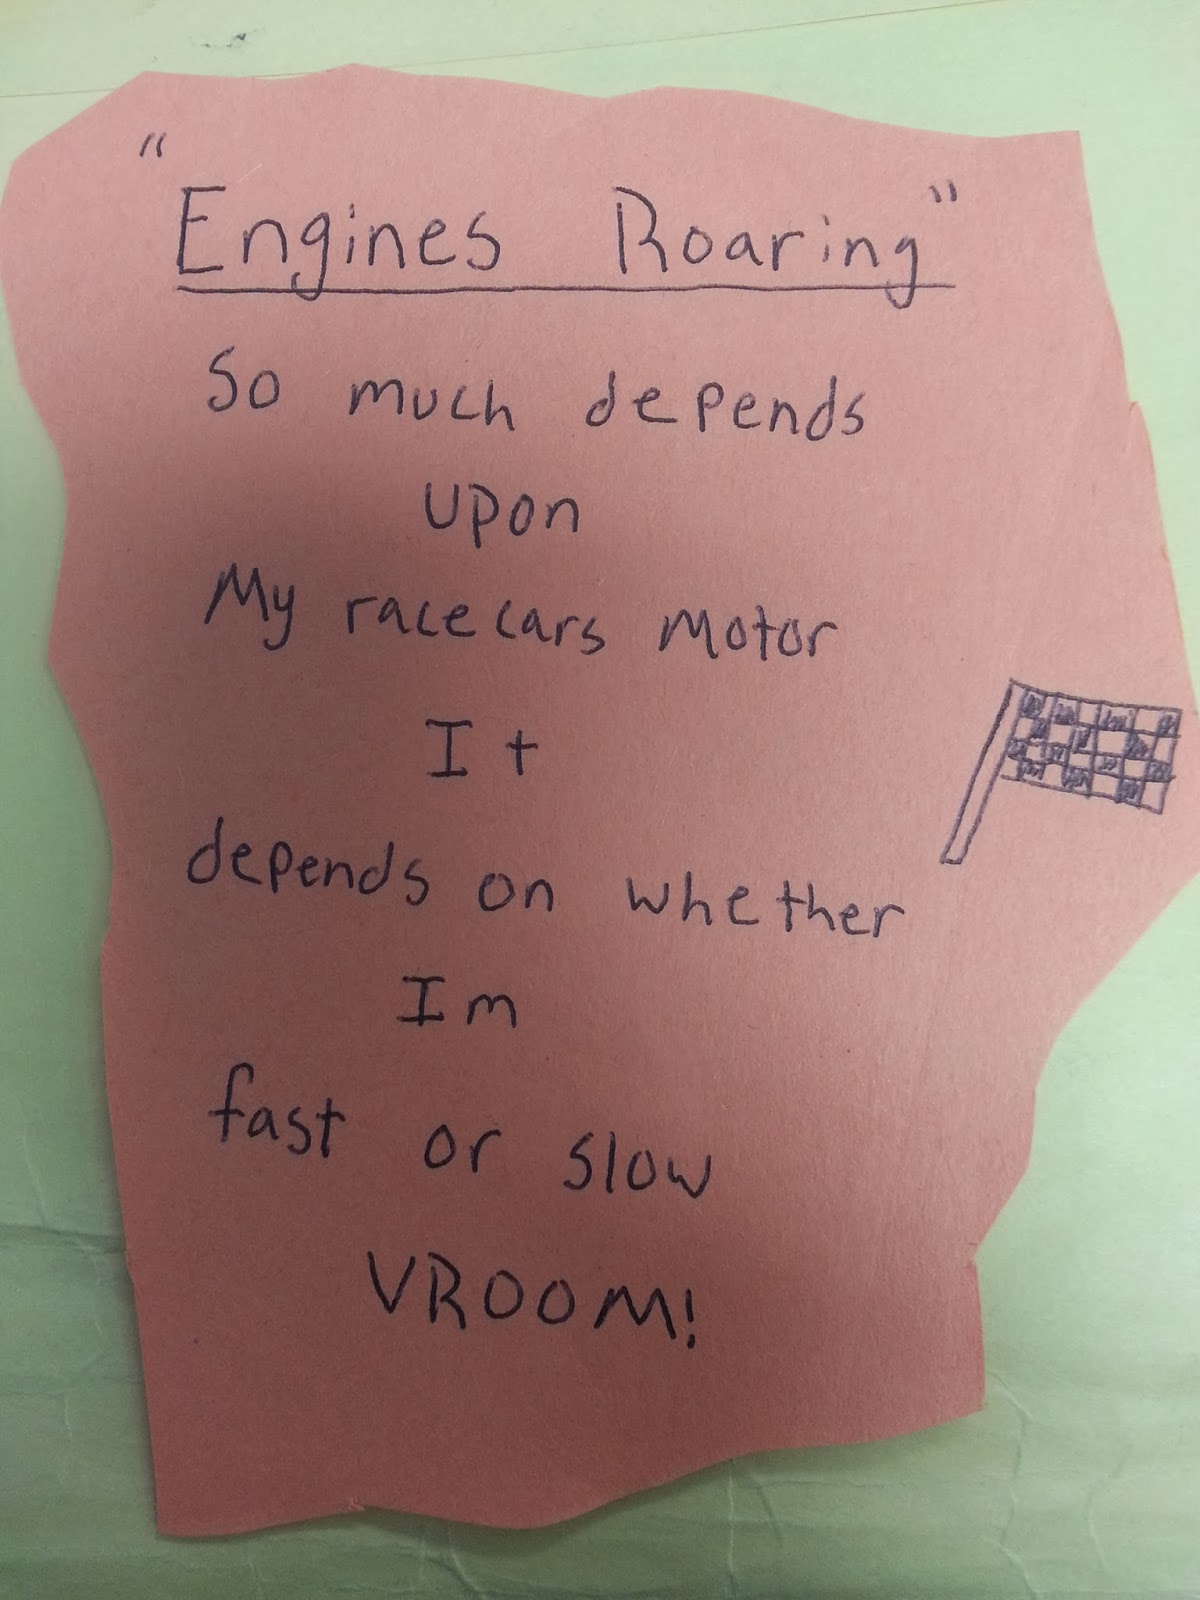 "Engines Roaring"
So much depends
upon
My racecars motor
It
depends on whether
Im
fast or slow
VROOM!